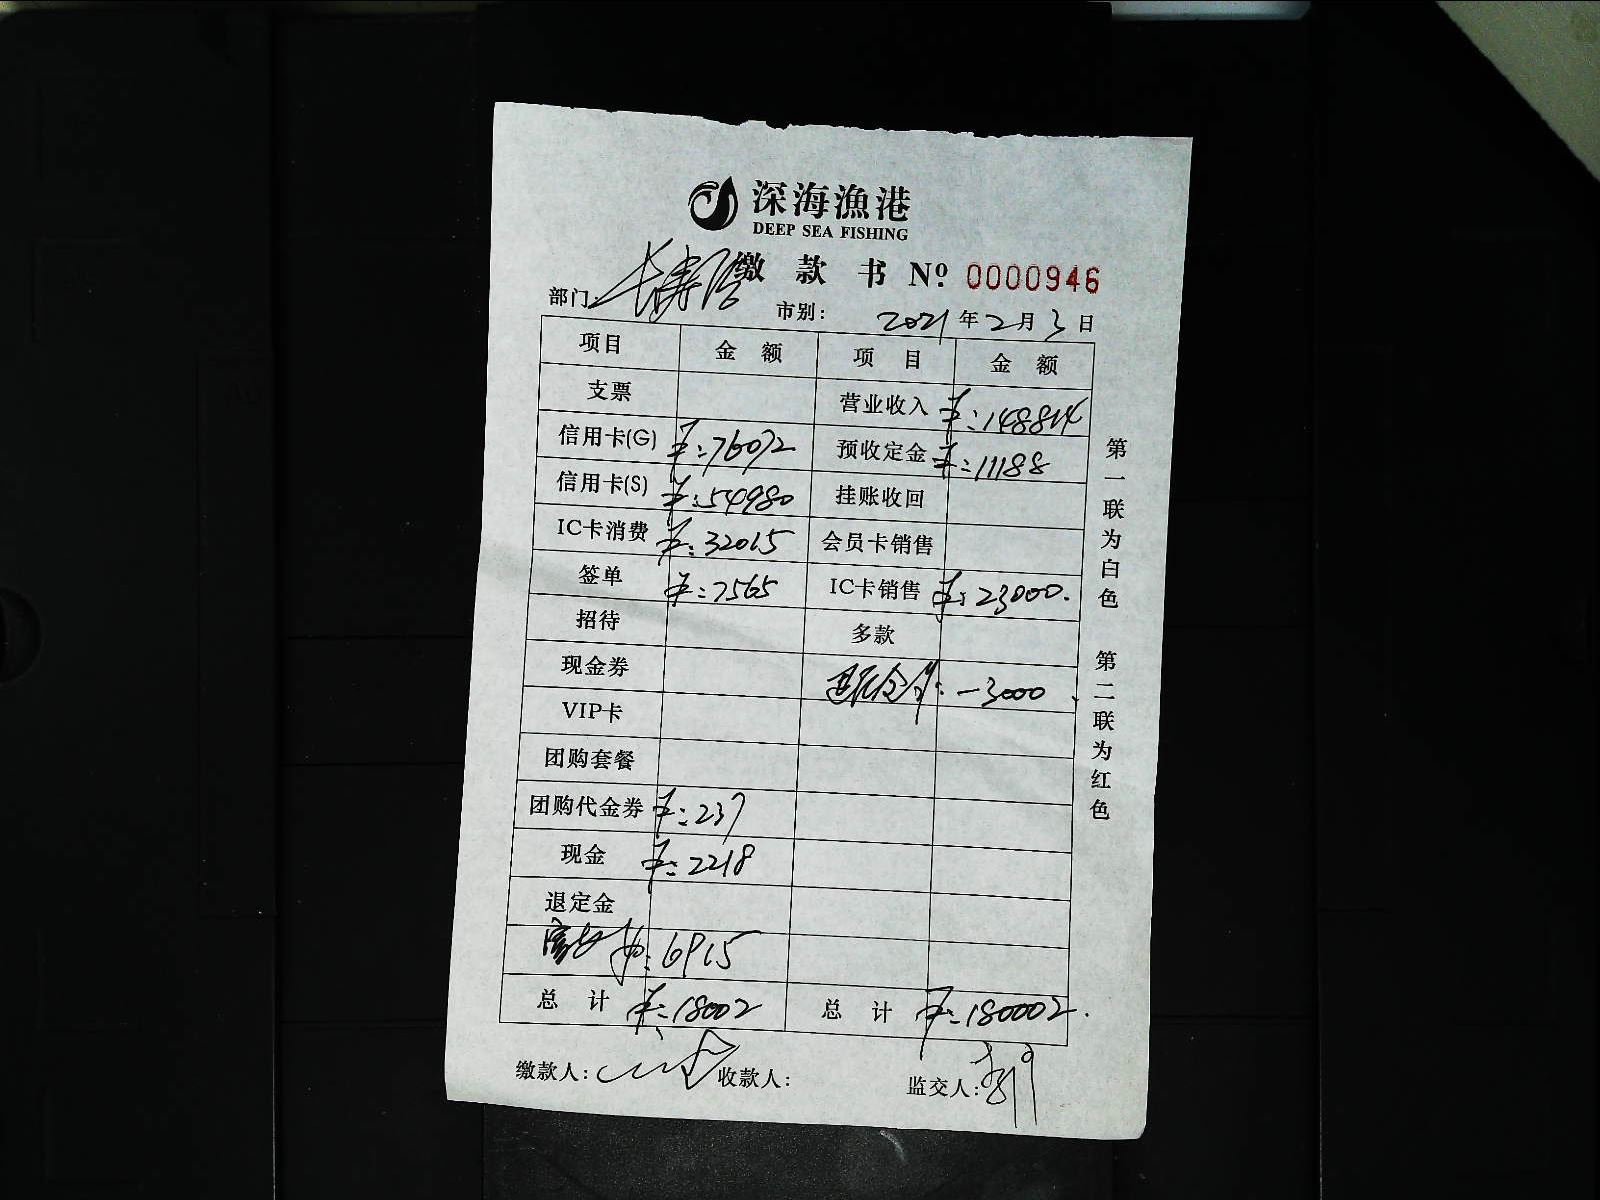 深海漁港
DEEP SEA FISHING
缴款书 Nº 0000946
部门: 长寿路 市别: 2021年2月3日
项目 金额 项目 金额
支票 营业收入 ¥:148814
信用卡(G) ¥:76072 预收定金 ¥:11188
信用卡(S) ¥:54980 挂账收回
IC卡消费 ¥:32015 会员卡销售
签单 ¥:7565 IC卡销售 ¥:23000.
招待 多款
现金券 -3000
VIP卡
团购套餐
团购代金券 ¥:237
现金 ¥:2218
退定金
:6915
总计 ¥:18002 总计 ¥:180002.
缴款人: 收款人: 监交人:
第一联为白色 第二联为红色